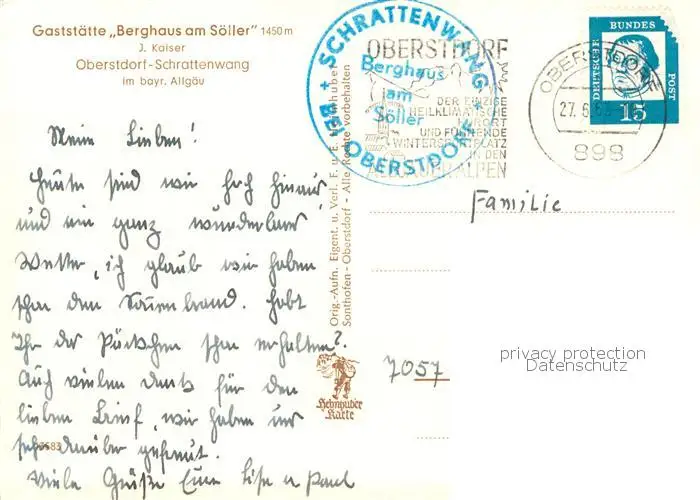 Gaststätte „Berghaus am Söller" 1450 m
J. Kaiser
Oberstdorf-Schrattenwang
im bayr. Allgäu
Meine Lieben!
Heute sind wir hoch hinauf
und ein ganz wunderbares
Wetter, ich glaub wir haben
schon den Sonnenbrand. Habt
Ihr das Päckchen schon erhalten?
Auch vielen Dank für den
lieben Brief, wir haben uns
sehr darüber gefreut.
Viele Grüße Eure Lise u Paul
Orig.-Aufn. Eigent. u. Verl. F. u. E. Heimhuber
Sonthofen - Oberstdorf - Alle Rechte vorbehalten
Heimhuber
Karte
+ SCHRATTENWANG +
BEI OBERSTDORF
Berghaus
am
Söller
OBERSTDORF
DER EINZIGE
HEILKLIMATISCHE
KURORT
UND FÜHRENDE
WINTERSPORTPLATZ
IN DEN
ALLGÄUER ALPEN
OBERSTDORF
27. 6. 63
898
DEUTSCHE BUNDES POST
15
Familie
7057
privacy protection
Datenschutz